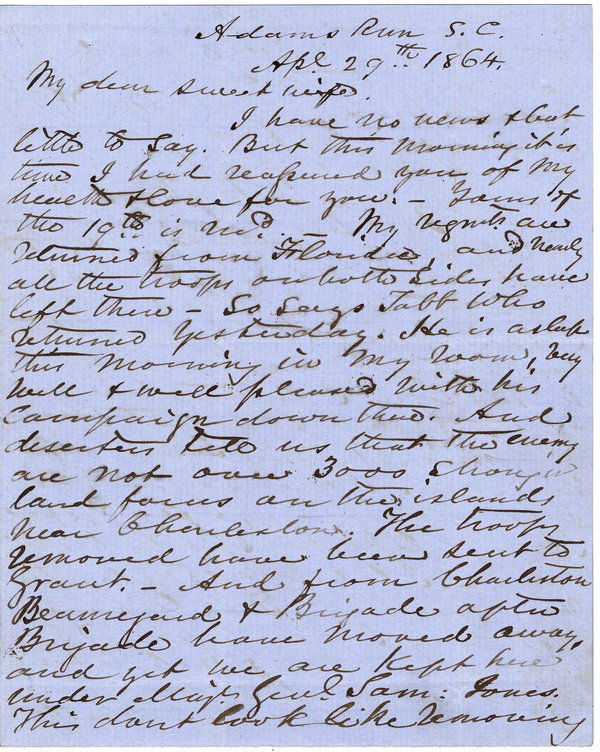 Adams Run S. C.
Apl 29th 1864.
My dear sweet wife.
I have no news & but
little to say. But this morning it is
time I had reassured you of my
health & love for you. – Yours of
the 19th is rec'd. – My regmts are
returned from Florida, and nearly
all the troops on both sides have
left there – So says Tabb who
returned yesterday. He is asleep
this morning in my room, very
well & well pleased with his
Campaign down there. And
deserters tell us that the enemy
are not over 3000 strong in
land forces on the islands
near Charleston. The troops
removed have been sent to
Grant. – And from Charleston
Beauregard & Brigade after
Brigade have moved away,
and yet we are kept here
under Maj. Genl. Sam: Jones.
This dont look like removing